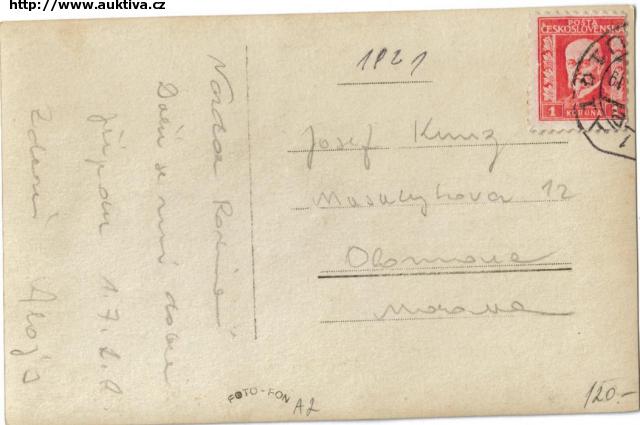 http://www.auktiva.cz
1921
POŠTA
ČESKOSLOVENSKÁ
1 KORUNA
Josef Kunz
Masarykova 12
Olomouc
Morava
Drazí Rodiče
Daří se mi dobře
1.7.
Zdraví Alojs
FOTO-FON
A2
120.-